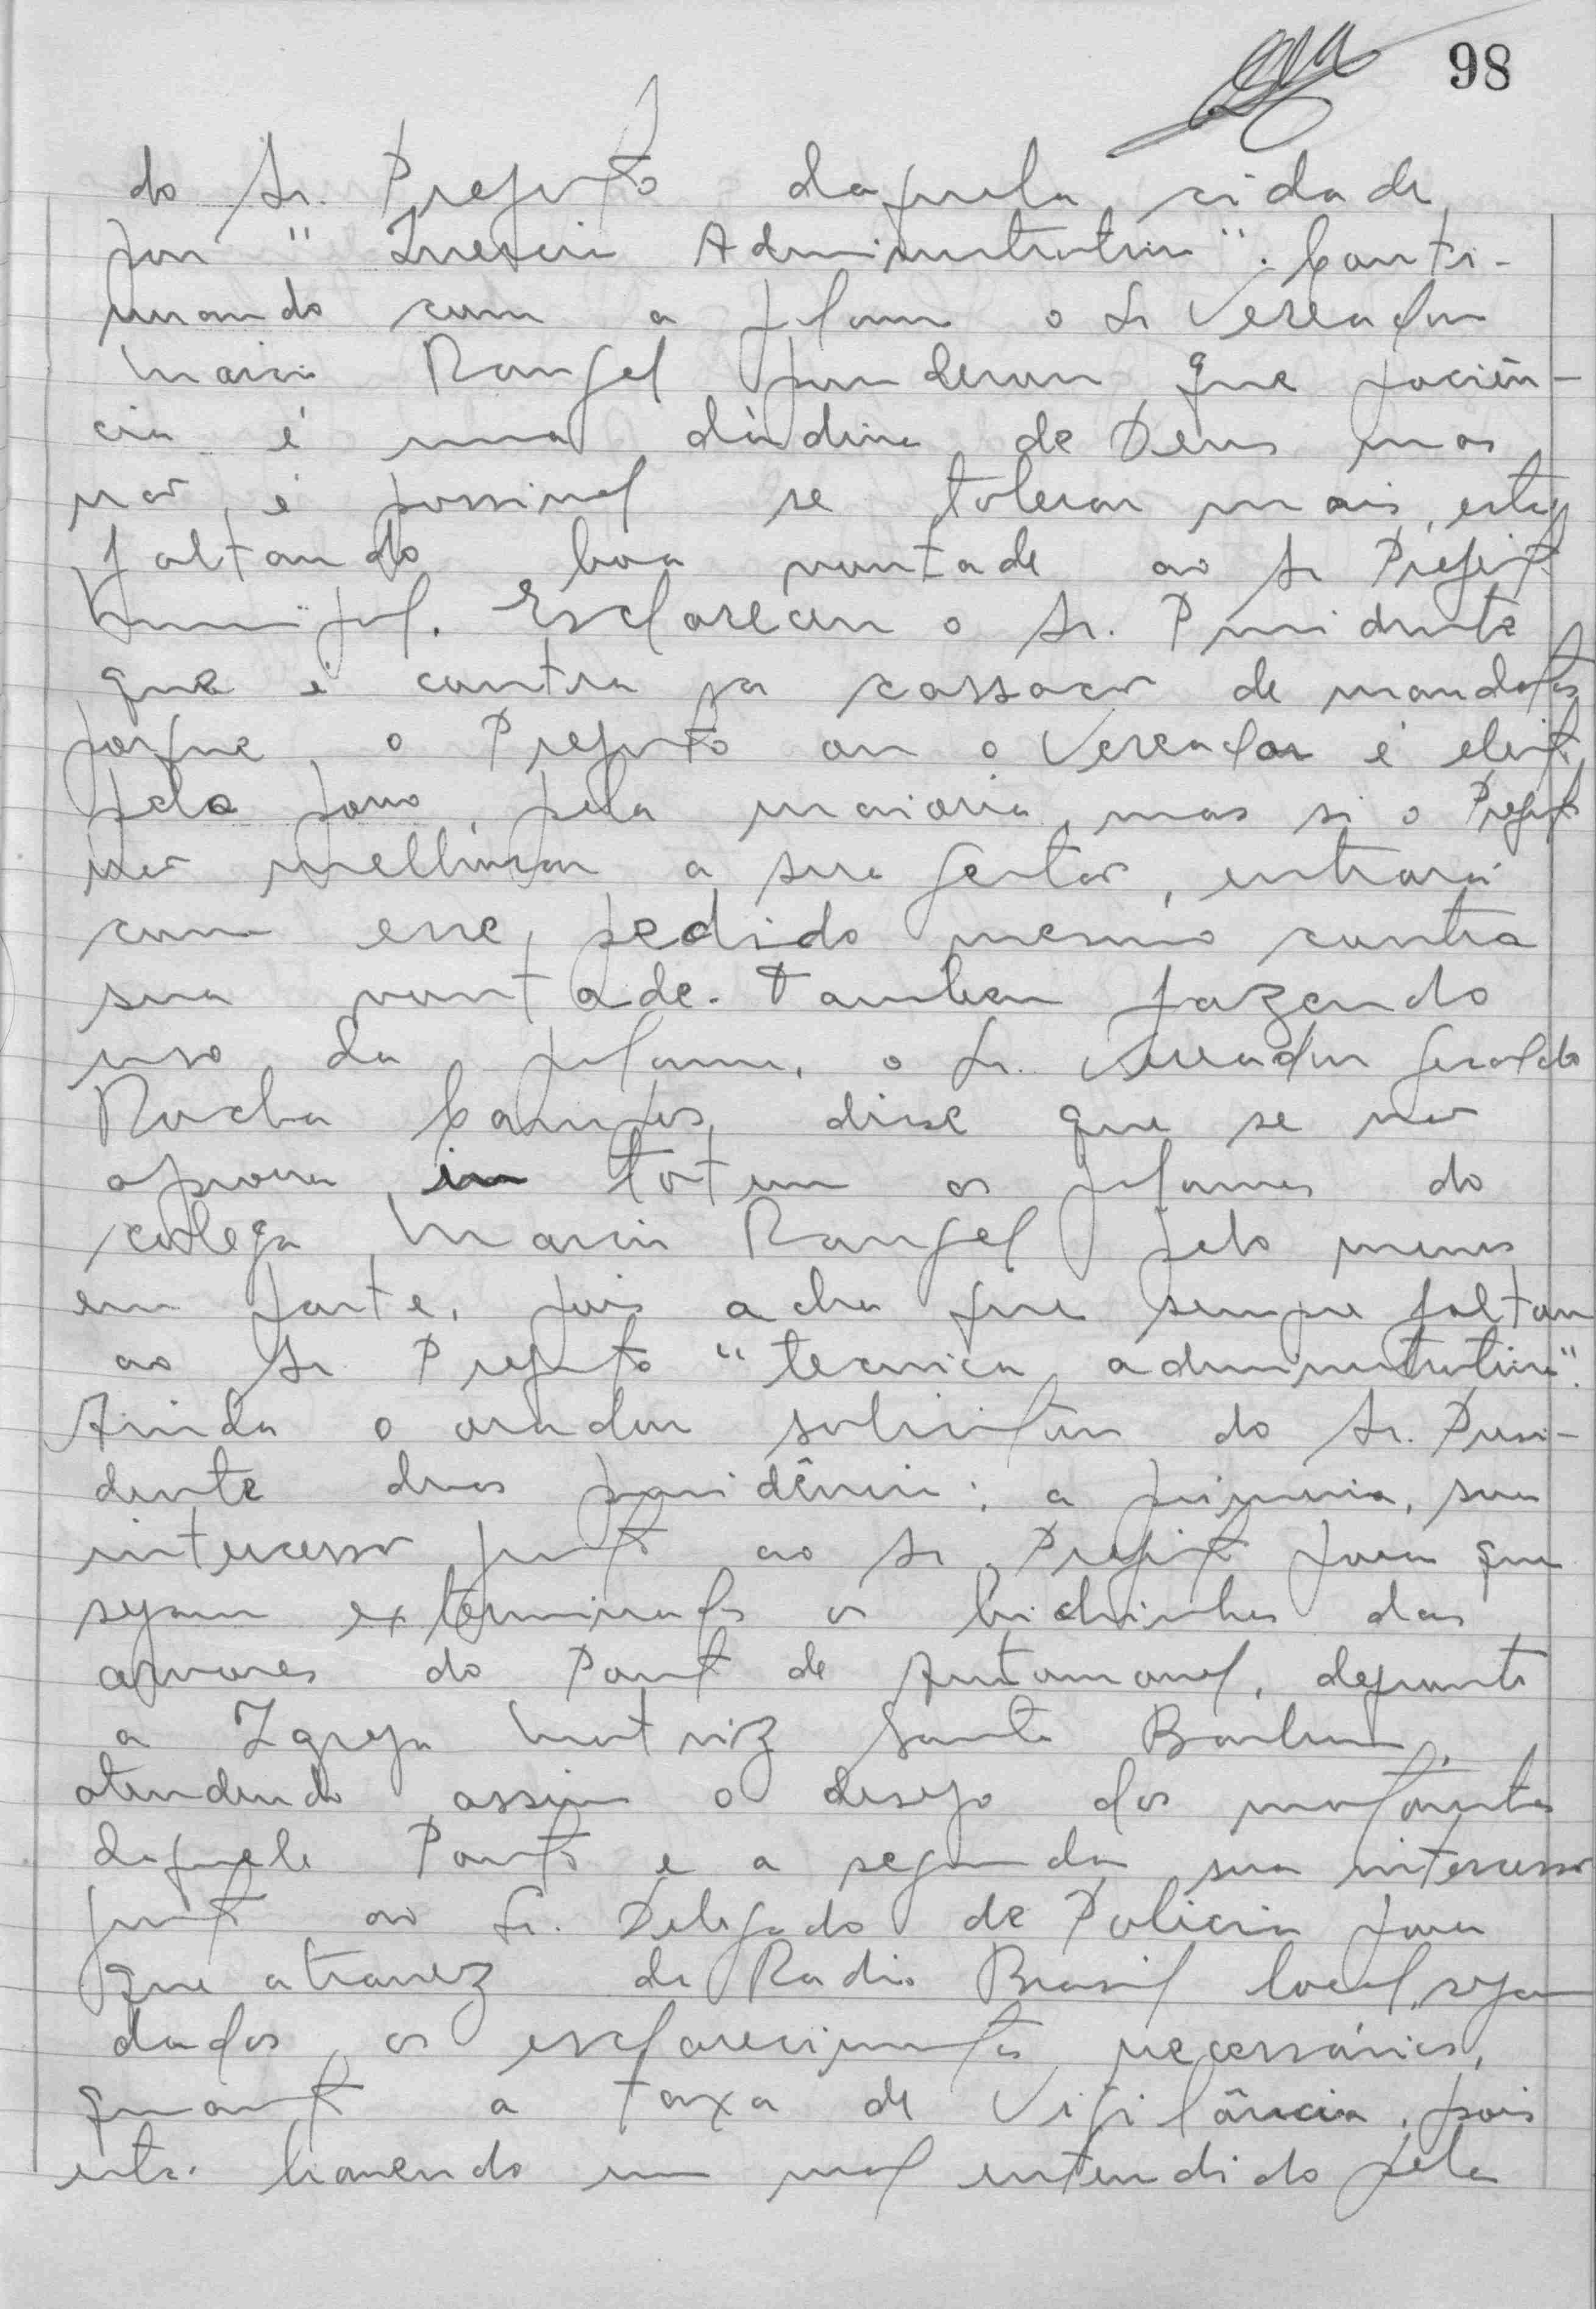 98
do Sr. Prefeito daquela cidade
por "Inercia Administrativa". Conti-
nuando com a palavra o Sr Vereador
Marcio Rangel ponderou que paciên-
cia é uma dádiva de Deus mas
não é possivel se tolerar mais, está
faltando boa vontade ao Sr Prefeito
Municipal. Esclareceu o Sr. Presidente
que é contra a cassação de mandatos
porque o Prefeito ou o Vereador é eleito
pelo povo, pela maioria, mas si o Prefeito
não melhorar a sua gestão, entrará
com esse pedido mesmo contra
sua vontade. Tambem fazendo
uso da palavra, o Sr. Vereador Geraldo
Rocha Campos, disse que se não
aprova in totum as palavras do
colega Marcio Rangel pelo menos
em parte, pois acha que sempre faltou
ao Sr Prefeito "tecnica administrativa".
Ainda o orador solicitou do Sr. Presi-
dente duas providências: a primeira, sua
intercessão junto ao Sr. Prefeito para que
sejam exterminados os bichinhos das
arvores do Ponto de Automovel, defronte
a Igreja Matriz Santa Barbara,
atendendo assim o desejo dos motoristas
daquele Ponto e a segunda sua intercessão
junto ao Sr. Delegado de Policia para
que atravez da Radio Brasil local, sejam
dados os esclarecimentos necessários,
quanto a taxa de Vigilância, pois
está havendo um mal entendido pela